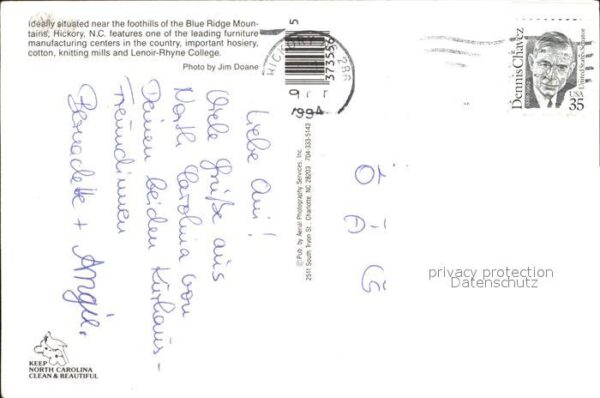 Ideally situated near the foothills of the Blue Ridge Moun-
tains, Hickory, N.C. features one of the leading furniture
manufacturing centers in the country, important hosiery,
cotton, knitting mills and Lenoir-Rhyne College.
Photo by Jim Doane
Liebe Ani!
Viele Grüße aus
North Carolina von
Deinen beiden Kurhaus-
freundinnen
Bernadette + Angie.
© Pub. by Aerial Photography Services, Inc.
2511 South Tryon St., Charlotte, NC 28203 704-333-5143
373556
1994
Dennis Chavez
United States Senator
USA
35
Ö
A
G
privacy protection
Datenschutz
KEEP
NORTH CAROLINA
CLEAN & BEAUTIFUL